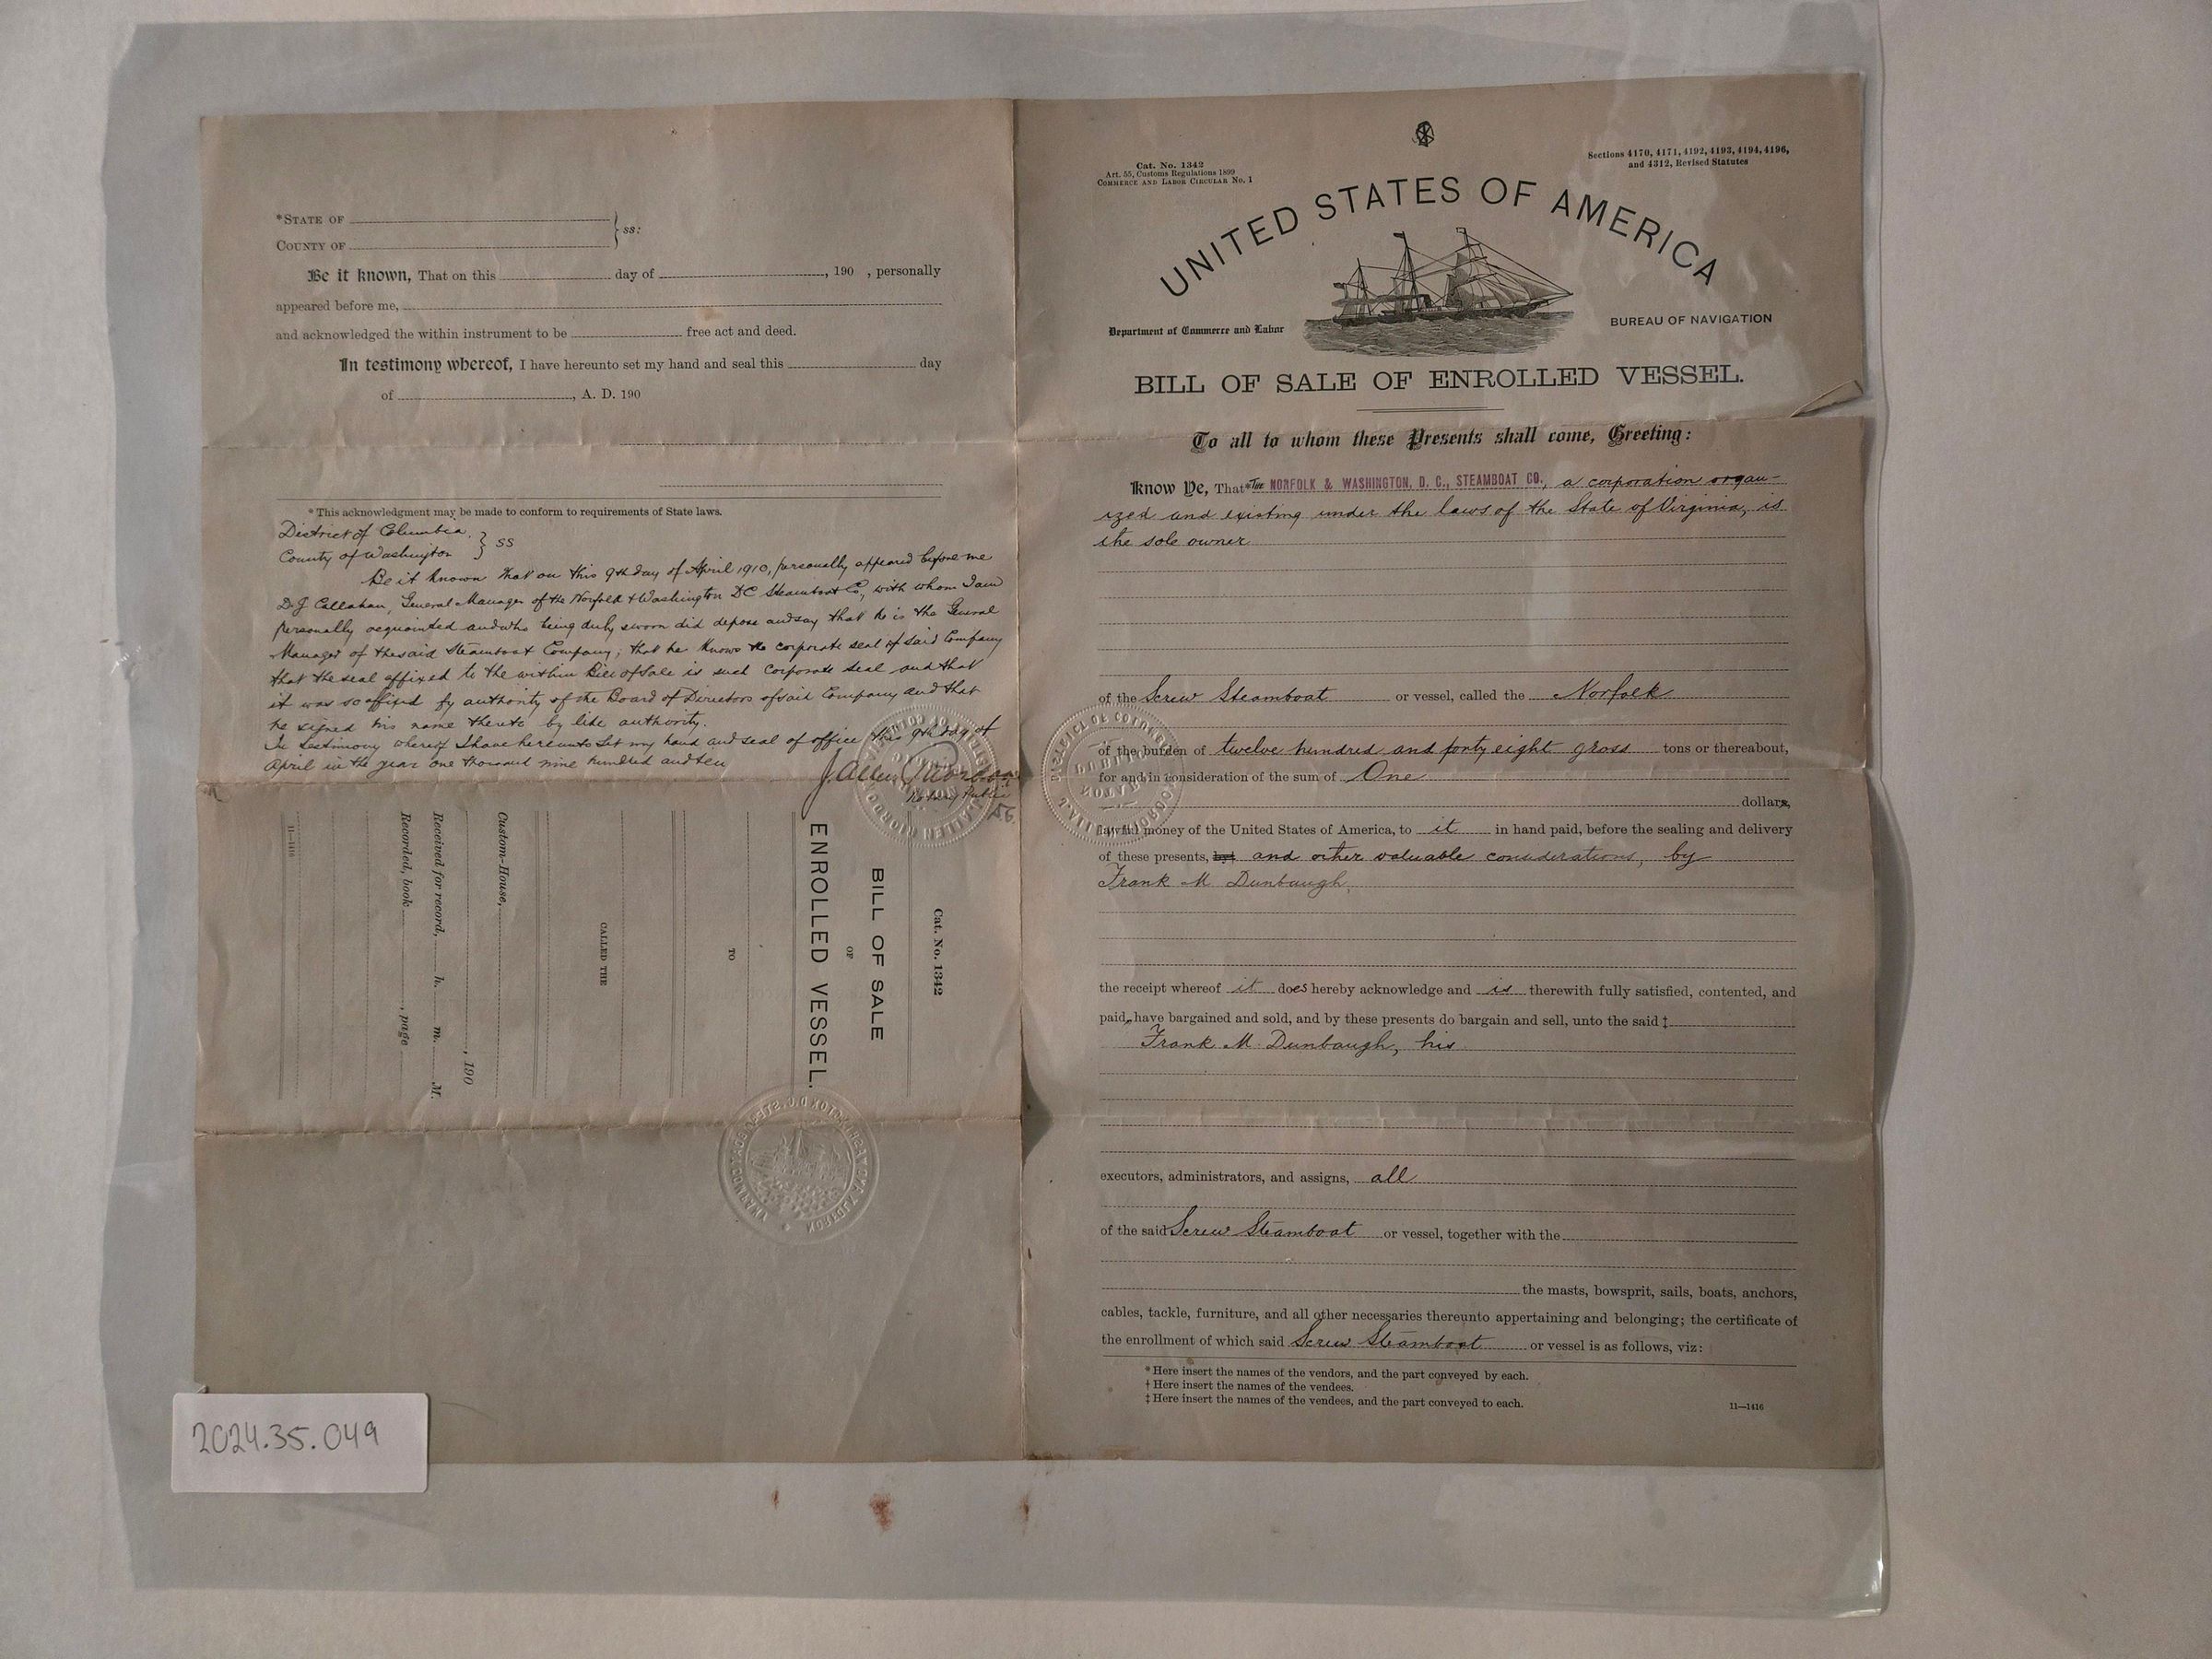 *STATE OF
COUNTY OF
ss:
Be it known, That on this day of , 190 , personally
appeared before me,
and acknowledged the within instrument to be free act and deed.
In testimony whereof, I have hereunto set my hand and seal this day
of , A. D. 190
* This acknowledgment may be made to conform to requirements of State laws.
District of Columbia
County of Washington } ss
Be it known that on this 9th day of April 1910, personally appeared before me
D. J. Callahan, General Manager of the Norfolk & Washington DC Steamboat Co, with whom I am
personally acquainted and who being duly sworn did depose and say that he is the General
Manager of the said Steamboat Company; that he knows the corporate seal of said Company
that the seal affixed to the within Bill of Sale is such corporate seal and that
it was so affixed by authority of the Board of Directors of said Company and that
he signed his name thereto by like authority.
In testimony whereof I have hereunto set my hand and seal of office this 9th day of
April in the year one thousand nine hundred and ten
J. Allen
Notary Public
Cat. No. 1342
BILL OF SALE
OF
ENROLLED VESSEL.
TO
CALLED THE
Custom-House,
, 190
Received for record, h. m. M.
Recorded, book , page
11—1416
2024.35.049
Cat. No. 1342
Art. 55, Customs Regulations 1899
COMMERCE AND LABOR CIRCULAR No. 1
Sections 4170, 4171, 4192, 4193, 4194, 4196,
and 4312, Revised Statutes
UNITED STATES OF AMERICA
Department of Commerce and Labor
BUREAU OF NAVIGATION
BILL OF SALE OF ENROLLED VESSEL.
To all to whom these Presents shall come, Greeting:
Know Ye, That * The NORFOLK & WASHINGTON, D. C., STEAMBOAT CO., a corporation organ-
ized and existing under the laws of the State of Virginia, is
the sole owner
of the Screw Steamboat or vessel, called the Norfolk
of the burden of twelve hundred and forty eight gross tons or thereabout,
for and in consideration of the sum of One
dollars,
lawful money of the United States of America, to it in hand paid, before the sealing and delivery
of these presents, by† and other valuable considerations, by
Frank M. Dunbaugh,
the receipt whereof it does hereby acknowledge and is therewith fully satisfied, contented, and
paid, have bargained and sold, and by these presents do bargain and sell, unto the said ‡
Frank M. Dunbaugh, his
executors, administrators, and assigns, all
of the said Screw Steamboat or vessel, together with the
the masts, bowsprit, sails, boats, anchors,
cables, tackle, furniture, and all other necessaries thereunto appertaining and belonging; the certificate of
the enrollment of which said Screw Steamboat or vessel is as follows, viz:
* Here insert the names of the vendors, and the part conveyed by each.
† Here insert the names of the vendees.
‡ Here insert the names of the vendees, and the part conveyed to each.
11—1416